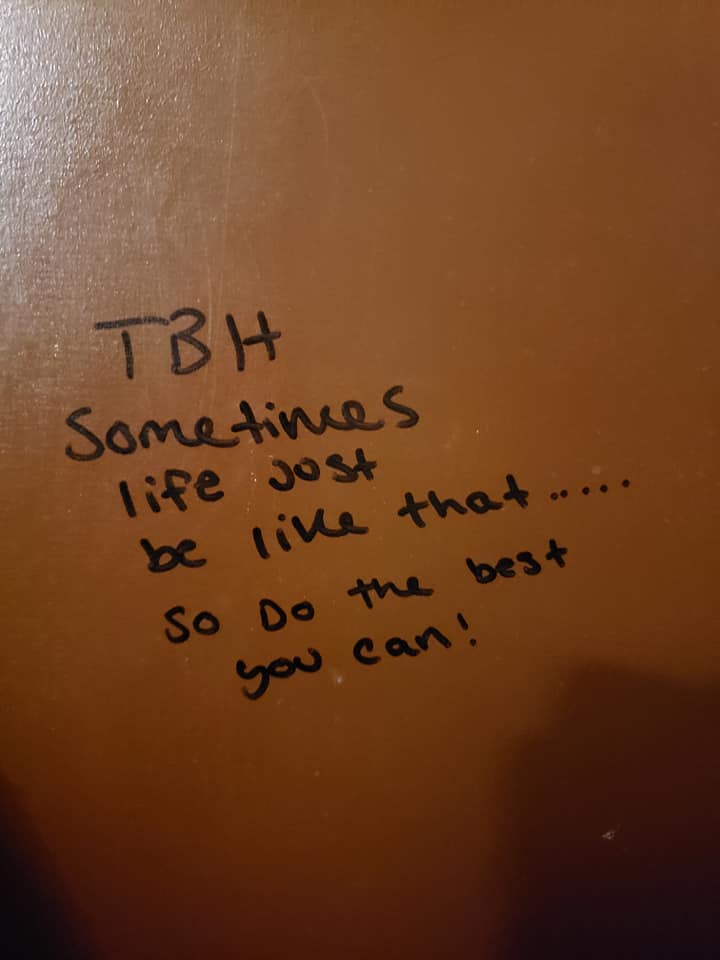 TBH
Sometimes
life just
be like that .....
so Do the best
you can!